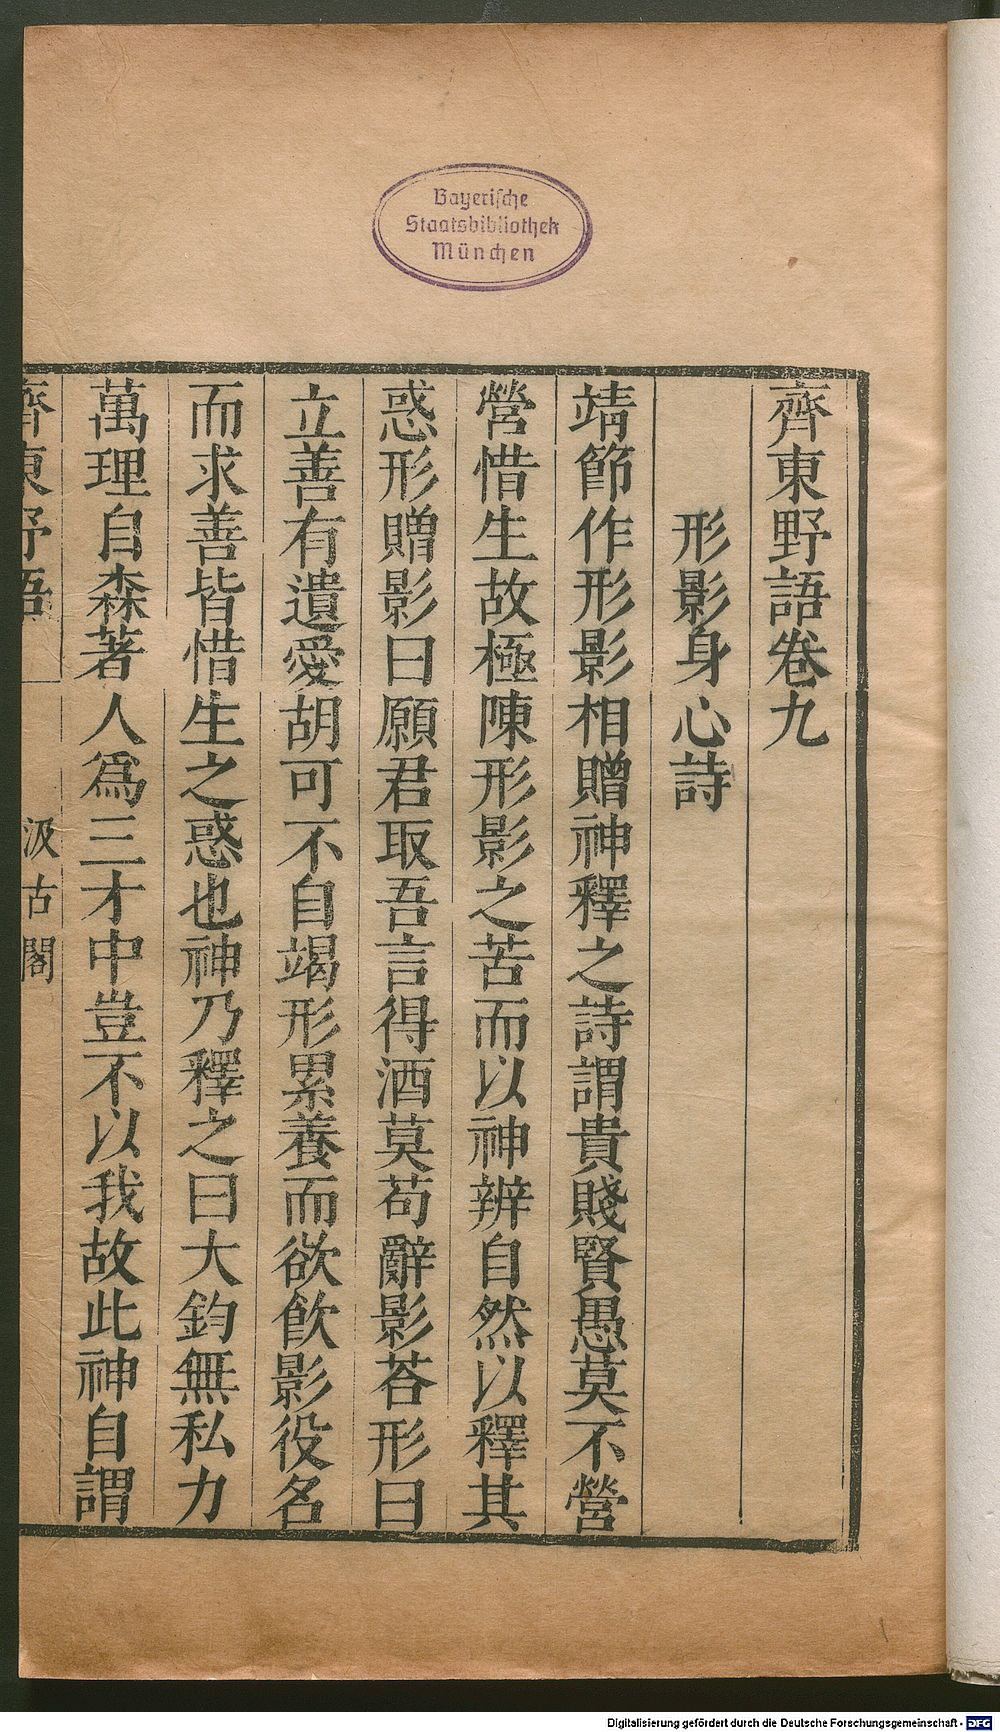 Bayerische
Staatsbibliothek
München
齊東野語卷九
形影身心詩
靖節作形影相贈神釋之詩謂貴賤賢愚莫不營
營惜生故極陳形影之苦而以神辨自然以釋其
惑形贈影曰願君取吾言得酒莫苟辭影荅形曰
立善有遺愛胡可不自竭形累養而欲飮影役名
而求善皆惜生之惑也神乃釋之曰大鈞無私力
萬理自森著人爲三才中豈不以我故此神自謂
齊東野語
汲古閣
Digitalisierung gefördert durch die Deutsche Forschungsgemeinschaft - DFG